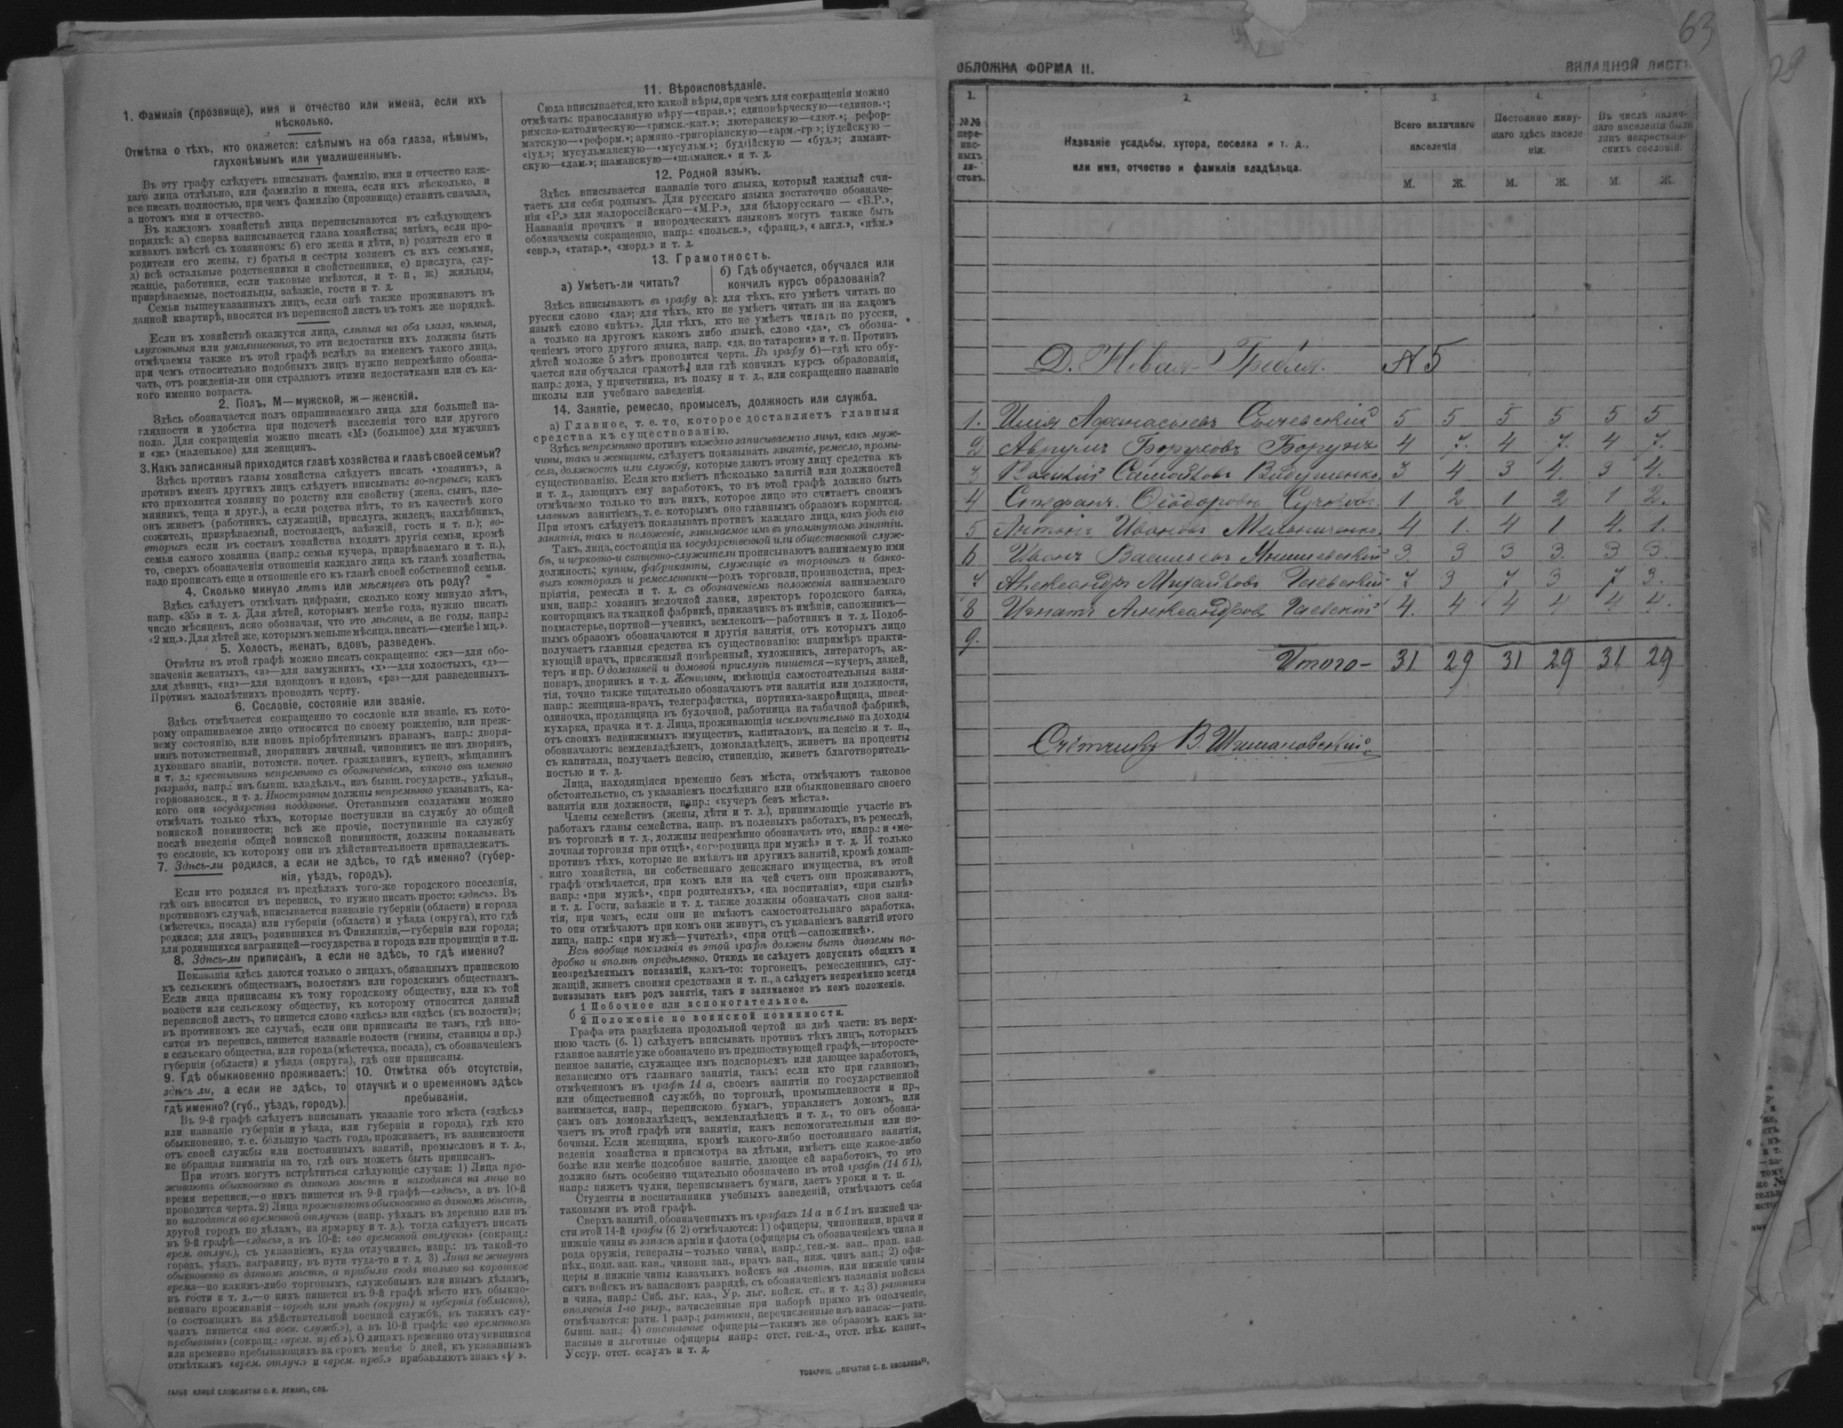 1. Фамилія (прозвище), имя и отчество или имена, если ихъ
нѣсколько.
Отмѣтка о тѣхъ, кто окажется: слѣпымъ на оба глаза, нѣмымъ,
глухонѣмымъ или умалишеннымъ.
Въ эту графу слѣдуетъ вписывать фамилію, имя и отчество каж-
даго лица отдѣльно, или фамилію и имена, если ихъ нѣсколько, и
все писать полностью, при чемъ фамилію (прозвище) ставить сначала,
а потомъ имя и отчество.
Въ каждомъ хозяйствѣ лица переписываются въ слѣдующемъ
порядкѣ: а) сперва записывается глава хозяйства; затѣмъ, если про-
живаютъ вмѣстѣ съ хозяиномъ: б) его жена и дѣти, в) родители его и
родители его жены, г) братья и сестры хозяевъ съ ихъ семьями,
д) всѣ остальные родственники и свойственники, е) прислуга, слу-
жащіе, работники, если таковые имѣются, и т. п., ж) жильцы,
призрѣваемые, постояльцы, заѣзжіе, гости и т. д.
Семьи вышеуказанныхъ лицъ, если онѣ также проживаютъ въ
данной квартирѣ, вносятся въ переписной листъ въ томъ же порядкѣ.
Если въ хозяйствѣ окажутся лица, слѣпыя на оба глаза, нѣмыя,
глухонѣмыя или умалишенныя, то эти недостатки ихъ должны быть
отмѣчаемы также въ этой графѣ вслѣдъ за именемъ такого лица,
при чемъ относительно подобныхъ лицъ нужно непремѣнно обозна-
чать, отъ рожденія-ли они страдаютъ этими недостатками или съ ка-
кого именно возраста.
2. Полъ. М—мужской, ж—женскій.
Здѣсь обозначается полъ опрашиваемаго лица для большей на-
глядности и удобства при подсчетѣ населенія того или другого
пола. Для сокращенія можно писать «М» (большое) для мужчинъ
и «ж» (маленькое) для женщинъ.
3. Какъ записанный приходится главѣ хозяйства и главѣ своей семьи?
Здѣсь противъ главы хозяйства слѣдуетъ писать «хозяинъ», а
противъ именъ другихъ лицъ слѣдуетъ вписывать: во-первыхъ, какъ
кто приходится хозяину по родству или свойству (жена, сынъ, пле-
мянникъ, теща и друг.), а если родства нѣтъ, то въ качествѣ кого
онъ живетъ (работникъ, служащій, прислуга, жилецъ, нахлѣбникъ,
сожитель, призрѣваемый, постоялецъ, заѣзжій, гость и т. п.); во-
вторыхъ если въ составъ хозяйства входятъ другія семьи, кромѣ
семьи самого хозяина (напр.: семья кучера, призрѣваемаго и т. п.),
то, сверхъ обозначенія отношенія каждаго лица къ главѣ хозяйства,
надо прописать еще и отношеніе его къ главѣ своей собственной семьи.
4. Сколько минуло лѣтъ или мѣсяцевъ отъ роду?
Здѣсь слѣдуетъ отмѣчать цифрами, сколько кому минуло лѣтъ,
напр. «35» и т. д. Для дѣтей, которымъ менѣе года, нужно писать
число мѣсяцевъ, ясно обозначая, что это мѣсяцы, а не годы, напр.:
«2 мц.». Для дѣтей же, которымъ меньше мѣсяца, писать—«менѣе 1 мц.».
5. Холостъ, женатъ, вдовъ, разведенъ.
Отвѣты въ этой графѣ можно писать сокращенно: «ж»—для обо-
значенія женатыхъ, «з»—для замужнихъ, «х»—для холостыхъ, «д»—
для дѣвицъ, «вд»—для вдовцовъ и вдовъ, «рз»—для разведенныхъ.
Противъ малолѣтнихъ проводить черту.
6. Сословіе, состояніе или званіе.
Здѣсь отмѣчается сокращенно то сословіе или званіе, къ кото-
рому опрашиваемое лицо относится по своему рожденію, или преж-
нему состоянію, или вновь пріобрѣтеннымъ правамъ, напр.: дворя-
нинъ потомственный, дворянинъ личный, чиновникъ не изъ дворянъ,
духовнаго званія, потомств. почет. гражданинъ, купецъ, мѣщанинъ
и т. д.; крестьянинъ непремѣнно съ обозначеніемъ, какого онъ именно
разряда, напр.: изъ бывш. владѣльч., изъ бывш. государств., удѣльн.,
горнозаводск., и т. д. Иностранцы должны непремѣнно указывать, ка-
кого они государства подданные. Отставными солдатами можно
отмѣчать только тѣхъ, которые поступили на службу до общей
воинской повинности; всѣ же прочіе, поступившіе на службу
послѣ введенія общей воинской повинности, должны показывать
то сословіе, къ которому они въ дѣйствительности принадлежатъ.
7. Здѣсь-ли родился, а если не здѣсь, то гдѣ именно? (губер-
нія, уѣздъ, городъ).
Если кто родился въ предѣлахъ того-же городского поселенія,
гдѣ онъ вносится въ перепись, то нужно писать просто: «здѣсь». Въ
противномъ случаѣ, вписывается названіе губерніи (области) и города
(мѣстечка, посада) или губерніи (области) и уѣзда (округа), кто гдѣ
родился; для лицъ, родившихся въ Финляндіи,—губерніи или города;
для родившихся заграницей—государства и города или провинціи и т.п.
8. Здѣсь-ли приписанъ, а если не здѣсь, то гдѣ именно?
Показанія здѣсь даются только о лицахъ, обязанныхъ припискою
къ сельскимъ обществамъ, волостямъ или городскимъ обществамъ.
Если лица приписаны къ тому городскому обществу, или къ той
волости или сельскому обществу, къ которому относится данный
переписной листъ, то пишется слово «здѣсь» или «здѣсь (къ волости)»;
въ противномъ же случаѣ, если они приписаны не тамъ, гдѣ вно-
сятся въ перепись, пишется названіе волости (гмины, станицы и пр.)
и сельскаго общества, или города (мѣстечка, посада), съ обозначеніемъ
губерніи (области) и уѣзда (округа), гдѣ они приписаны.
9. Гдѣ обыкновенно проживаетъ: здѣсь ли, а если не здѣсь, то гдѣ именно? (губ., уѣздъ, городъ).
10. Отмѣтка объ отсутствіи, отлучкѣ и о временномъ здѣсь пребываніи.
Въ 9-й графѣ слѣдуетъ вписывать указаніе того мѣста («здѣсь»
или названіе губерніи и уѣзда, или губерніи и города), гдѣ кто
обыкновенно, т. е. большую часть года, проживаетъ, въ зависимости
отъ своей службы или постоянныхъ занятій, промысловъ и т. д.,
не обращая вниманія на то, гдѣ онъ можетъ быть приписанъ.
При этомъ могутъ встрѣтиться слѣдующіе случаи: 1) Лица про-
живаютъ обыкновенно въ данномъ мѣстѣ и находятся на лицо во
время переписи,—о нихъ пишется въ 9-й графѣ—«здѣсь», а въ 10-й
проводится черта. 2) Лица проживаютъ обыкновенно въ данномъ мѣстѣ,
но находятся во временной отлучкѣ (напр. уѣхалъ въ деревню или въ
другой городъ по дѣламъ, на ярмарку и т. д.), тогда слѣдуетъ писать
въ 9-й графѣ—«здѣсь», а въ 10-й: «во временной отлучкѣ» (сокращ.:
врем. отлуч.), съ указаніемъ, куда отлучились, напр.: въ такой-то
городъ, уѣздъ, заграницу, въ пути туда-то и т. д. 3) Лица не живутъ
обыкновенно въ данномъ мѣстѣ, а прибыли сюда только на короткое
время—по какимъ-либо торговымъ, служебнымъ или инымъ дѣламъ,
въ гости и т. д.,—о нихъ пишется въ 9-й графѣ мѣсто ихъ обыкно-
веннаго проживанія—городъ или уѣздъ (округъ) и губернія (область),
(о состоящихъ на дѣйствительной военной службѣ, въ такихъ слу-
чаяхъ пишется «на воен. служб.»), а въ 10-й графѣ: «во временномъ
пребываніи» (сокращ.: «врем. преб.»). О лицахъ временно отлучившихся
или временно пребывающихъ на срокъ менѣе 5 дней, къ указаннымъ
отмѣткамъ «врем. отлуч.» и «врем. преб.» прибавляютъ знакъ «√».
11. Вѣроисповѣданіе.
Сюда вписывается, кто какой вѣры, при чемъ для сокращенія можно
отмѣчать: православную вѣру—«прав.»; единовѣрческую—«единов.»;
римско-католическую—«римск.-кат.»; лютеранскую—«лют.»; рефор-
матскую—«реформ.»; армяно-григоріанскую—«арм.-гр.»; іудейскую—
«іуд.»; мусульманскую—«мусульм.»; буддійскую — «буд.»; ламаит-
скую—«лам.»; шаманскую—«шаманск.» и т. д.
12. Родной языкъ.
Здѣсь вписывается названіе того языка, который каждый счи-
таетъ для себя роднымъ. Для русскаго языка достаточно обозначе-
нія «Р.» для малороссійскаго—«М.Р.», для бѣлорусскаго — «Б.Р.»,
Названія прочихъ и инородческихъ языковъ могутъ также быть
обозначаемы сокращенно, напр.: «польск.», «франц.», «англ.», «нѣм.»
«евр.», «татар.», «морд.» и т. д.
13. Грамотность.
а) Умѣетъ-ли читать?
б) Гдѣ обучается, обучался или кончилъ курсъ образованія?
Здѣсь вписываютъ въ графу а): для тѣхъ, кто умѣетъ читать по
русски слово «да»; для тѣхъ, кто не умѣетъ читать ни на какомъ
языкѣ слово «нѣтъ». Для тѣхъ, кто не умѣетъ читать по русски,
а только на другомъ какомъ либо языкѣ, слово «да», съ обозна-
ченіемъ этого другого языка, напр. «да, по татарски» и т. п. Противъ
дѣтей моложе 5 лѣтъ проводится черта. Въ графу б)—гдѣ кто обу-
чается или обучался грамотѣ, или гдѣ кончилъ курсъ образованія,
напр.: дома, у причетника, въ полку и т. д., или сокращенно названіе
школы или учебнаго заведенія.
14. Занятіе, ремесло, промыселъ, должность или служба.
а) Главное, т. е. то, которое доставляетъ главныя
средства къ существованію.
Здѣсь непремѣнно противъ каждаго записываемаго лица, какъ муж-
чины, такъ и женщины, слѣдуетъ показывать занятіе, ремесло, промы-
селъ, должность или службу, которые даютъ этому лицу средства къ
существованію. Если кто имѣетъ нѣсколько занятій или должностей
и т. д., дающихъ ему заработокъ, то въ этой графѣ должно быть
отмѣчаемо только то изъ нихъ, которое лицо это считаетъ своимъ
главнымъ занятіемъ, т. е. которымъ оно главнымъ образомъ кормится.
При этомъ слѣдуетъ показывать противъ каждаго лица, какъ родъ его
занятія, такъ и положеніе, занимаемое имъ въ упомянутомъ занятіи.
Такъ, лица, состоящія на государственной или общественной служ-
бѣ, и церковно-священно-служители прописываютъ занимаемую ими
должность; купцы, фабриканты, служащіе въ торговыхъ и банко-
выхъ конторахъ и ремесленники—родъ торговли, производства, пред-
пріятія, ремесла и т. д. съ обозначеніемъ положенія занимаемаго
ими, напр.: хозяинъ мелочной лавки, директоръ городского банка,
конторщикъ на ткацкой фабрикѣ, приказчикъ въ имѣніи, сапожникъ—
подмастерье, портной—ученикъ, землекопъ—работникъ и т. д. Подоб-
нымъ образомъ обозначаются и другія занятія, отъ которыхъ лицо
получаетъ главныя средства къ существованію: напримѣръ практи-
кующій врачъ, присяжный повѣренный, художникъ, литераторъ, ак-
теръ и пр. О домашней и домовой прислугѣ пишется—кучеръ, лакей,
поваръ, дворникъ и т. д. Женщины, имѣющія самостоятельныя заня-
тія, точно также тщательно обозначаютъ эти занятія или должности,
напр.: женщина-врачъ, телеграфистка, портниха-закройщица, швея-
одиночка, продавщица въ булочной, работница на табачной фабрикѣ,
кухарка, прачка и т. д. Лица, проживающія исключительно на доходы
отъ своихъ недвижимыхъ имуществъ, капиталовъ, на пенсію и т. п.,
обозначаютъ: землевладѣлецъ, домовладѣлецъ, живетъ на проценты
съ капитала, получаетъ пенсію, стипендію, живетъ благотворитель-
ностью и т. д.
Лица, находящіяся временно безъ мѣста, отмѣчаютъ таковое
обстоятельство, съ указаніемъ послѣдняго или обыкновеннаго своего
занятія или должности, напр.: «кучеръ безъ мѣста».
Члены семействъ (жены, дѣти и т. д.), принимающіе участіе въ
работахъ главы семейства, напр. въ полевыхъ работахъ, въ ремеслѣ,
въ торговлѣ и т. д., должны непремѣнно обозначать это, напр.: и «ме-
лочная торговля при отцѣ», «огородница при мужѣ» и т. д. И только
противъ тѣхъ, которые не имѣютъ ни другихъ занятій, кромѣ домаш-
няго хозяйства, ни собственнаго денежнаго имущества, въ этой
графѣ отмѣчается, при комъ или на чей счетъ они проживаютъ,
напр.: «при мужѣ», «при родителяхъ», «на воспитаніи», «при сынѣ»
и т. д. Гости, заѣзжіе и т. д. также должны обозначать свои заня-
тія, при чемъ, если они не имѣютъ самостоятельнаго заработка,
то они отмѣчаютъ при комъ они живутъ, съ указаніемъ занятій этого
лица, напр.: «при мужѣ—учителѣ», «при отцѣ—сапожникѣ».
Всѣ вообще показанія въ этой графѣ должны быть даваемы по-
дробно и вполнѣ опредѣленно. Отнюдь не слѣдуетъ допускать общихъ и
неопредѣленныхъ показаній, какъ-то: торговецъ, ремесленникъ, слу-
жащій, живетъ своими средствами и т. п., а слѣдуетъ непремѣнно всегда
показывать какъ родъ занятія, такъ и занимаемое въ немъ положеніе.
б 1 Побочное или вспомогательное.
2 Положеніе по воинской повинности.
Графа эта раздѣлена продольной чертой на двѣ части: въ верх-
нюю часть (б. 1) слѣдуетъ вписывать противъ тѣхъ лицъ, которыхъ
главное занятіе уже обозначено въ предшествующей графѣ,—второсте-
пенное занятіе, служащее имъ подспорьемъ или дающее заработокъ,
независимо отъ главнаго занятія, такъ: если кто при главномъ,
отмѣченномъ въ графѣ 14 а, своемъ занятіи по государственной
или общественной службѣ, по торговлѣ, промышленности и пр.,
занимается, напр., перепискою бумагъ, управляетъ домомъ, или
самъ онъ домовладѣлецъ, землевладѣлецъ и т. д., то онъ обозна-
чаетъ въ этой графѣ эти занятія, какъ вспомогательныя или по-
бочныя. Если женщина, кромѣ какого-либо постояннаго занятія,
веденія хозяйства и присмотра за дѣтьми, имѣетъ еще какое-либо
болѣе или менѣе подсобное занятіе, дающее ей заработокъ, то это
должно быть особенно тщательно обозначено въ этой графѣ (14 б 1),
напр.: вяжетъ чулки, переписываетъ бумаги, даетъ уроки и т. п.
Студенты и воспитанники учебныхъ заведеній, отмѣчаютъ себя
таковыми въ этой графѣ.
Сверхъ занятій, обозначенныхъ въ графахъ 14 а и б 1 въ нижней ча-
сти этой 14-й графы (б 2) отмѣчаются: 1) офицеры, чиновники, врачи и
нижніе чины въ запасѣ арміи и флота (офицеры съ обозначеніемъ чина и
рода оружія, генералы—только чина), напр.: ген.-м. зап., прап. зап.
пѣх., подп. зап. кав., чиновн. зап., врачъ зап., ниж. чинъ зап.; 2) офи-
церы и нижніе чины казачьихъ войскъ на льготѣ, или нижніе чины
сихъ войскъ въ запасномъ разрядѣ, съ обозначеніемъ названія войска
и чина, напр.: Сиб. льг. каз., Ур. льг. войск. ст., и т. д.; 3) ратники
ополченія 1-го разр., зачисленные при наборѣ прямо въ ополченіе,
отмѣчаются: ратн. 1 разр.; ратники, перечисленные изъ запаса:—ратн.
бывш. зап.; 4) отставные офицеры—такимъ же образомъ какъ за-
пасные и льготные офицеры напр.: отст. ген.-л., отст. пѣх. капит.,
Уссур. отст. есаулъ и т. д.
ГАЛЬВ. КЛИШЕ СЛОВОЛИТНИ О. И. ЛЕМАНЪ, СПБ.
ТОВАРИЩ. „ПЕЧАТНЯ С. П. ЯКОВЛЕВА",
63
ОБЛОЖКА ФОРМА II.
ВКЛАДНОЙ ЛИСТЪ
1. 2. 3. 4.
№№ пере-пис-ныхъ ли-стовъ.
Названіе усадьбы, хутора, поселка и т. д.,
или имя, отчество и фамилія владѣльца.
Всего наличнаго населенія
Постоянно живу-щаго здѣсь населе-нія.
Въ числѣ налич-наго населенія было лицъ некрестьян-скихъ сословій.
М. Ж. М. Ж. М. Ж.
Д. Новая-Гребля. №5
1. Илія Афанасьевъ 5 5 5 5 5 5
2 Аврумъ Боруховъ Борунъ 4 7. 4 7. 4 7.
3 3 4 3 4. 3 4.
4 Стефанъ Ѳеодоровъ 1 2 1 2 1 2.
5 Антонъ Ивановъ Мельниченко 4 1. 4 1 4. 1.
6 Иванъ Васильевъ 3. 3 3 3. 3 3.
7 Александръ Михайловъ 7 3 7 3 7 3.
8 Игнатъ Александровъ 4. 4 4 4 4 4.
9.
Итого- 31 29 31 29 31 29
Счетчикъ В. Шимановскій